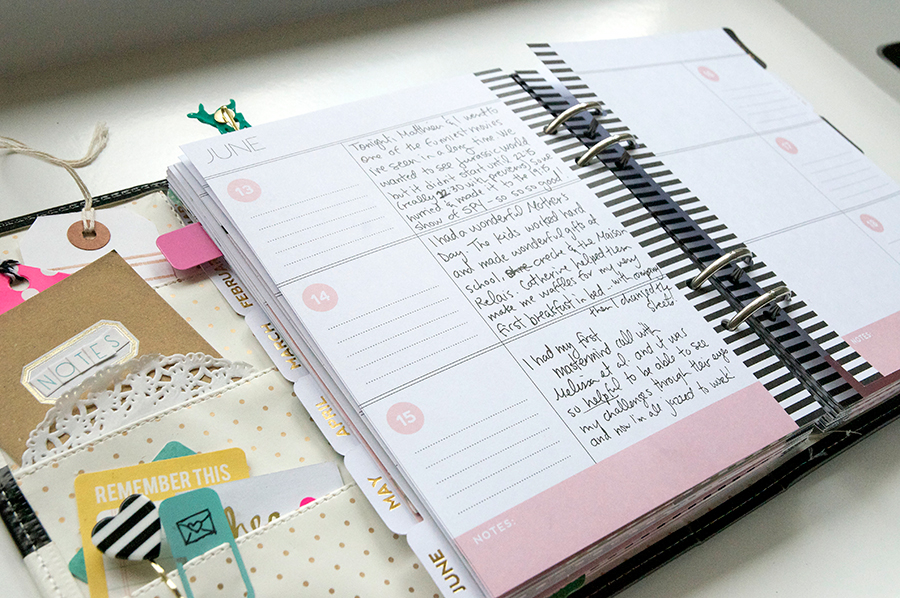 JUNE
13
Tonight, Matthieu & I went to
one of the funniest movies
I've seen in a long time. We
wanted to see Jurassic world
but it didn't start until
(really 22:30 with previews) so we
hurried & made it to the
show of SPY – so so so good!
14
I had a wonderful Mother's
Day. The kids worked hard
and made wonderful gifts at
school, creche & the Maison
Relais. Catherine helped them
make me waffles for my very
first breakfast in bed... with company
then changed my
sheets!
15
I had my first
mastermind call with
Melissa et al. and it was
so helpful to be able to see
my challenges through their eyes
and now I'm all jazzed to work!
NOTES:
16
17
18
NOTES
FEBRUARY
MARCH
APRIL
MAY
JUNE
NOTIES
REMEMBER THIS